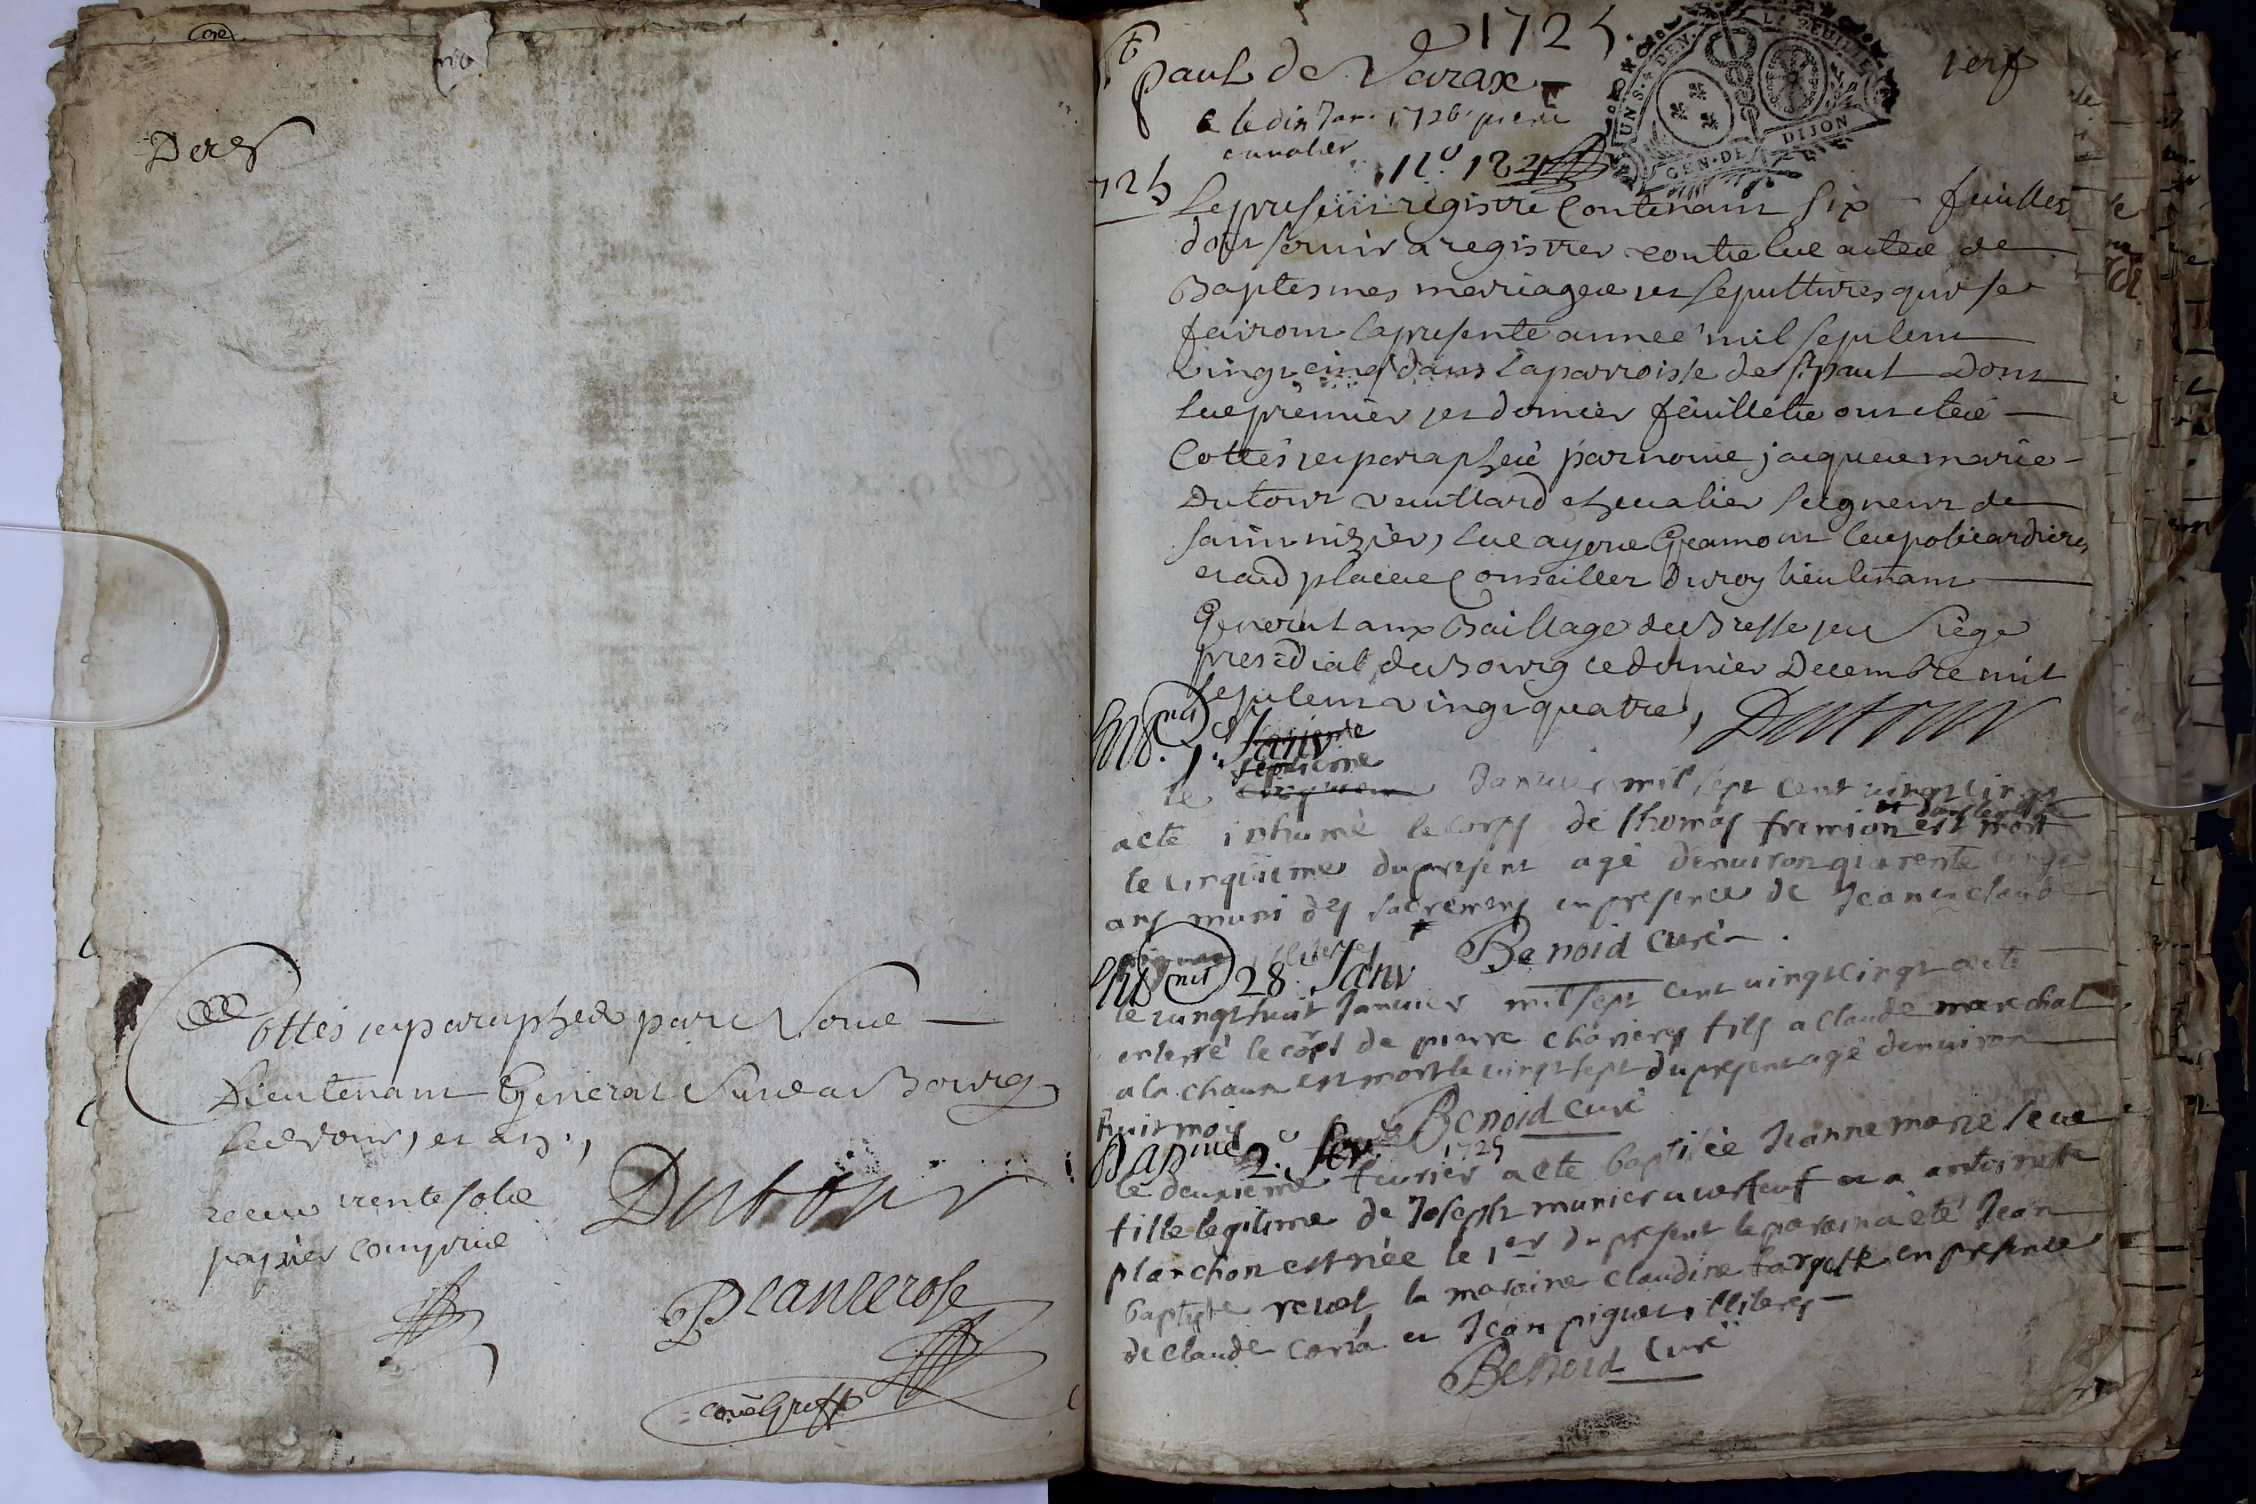 Der
Cottés et paraphés par Nous
Lieutenant General Susd a Bourg
Lesd jour, et an,
receu trente sols
papier compris
Dutour
Commis Greff
1725
St paul de Varax
1er f
UN S. DEN. LA FEUILLE
GEN. DE DIJON
le dix Jan. 1726
No. 124
725
Le present registre Contenant Six feuillets
doit servir a registrer toutes les actes de
Baptesmes mariages et Sepultures qui se
fairont la presente année mil Sept cent
vingt cinq dans la parroisse de St paul dont
les premier et dernier feuillets ont etés
Cottés et paraphés par nous jacques marie
Dutour vuillard chevalier Seigneur de
Saint nizier,
et autres places Conseiller du roy lieutenant
General aux Baillage de Bresse et Siège
presidial de Bourg ce dernier Decembre mil
Sept cent vingt quatre, Dutour
1. Janv
septieme
le Janvier mil sept cent vingt cinq
a eté inhumé le corps de thomas fremion est mort
le cinquieme du present agé denviron quarente cinq
ans muni des sacremens en presence de Jean et claude
illiterés Benoid curé
28. Janv
le vingt huit Janvier mil sept cent vingt cinq a eté
enterré le corps de pierre charieres fils a claude marechal
a la chaux est mort le vingt sept du present agé denviron
huit mois Benoid curé
Bapme 2. fev. 1725
le deuxieme fevrier a eté baptisée Jeanne marie
fille legitime de Joseph munier et a antoinette
planchon est née le 1er du present le parain a eté Jean
baptiste revel la maraine claudine en presence
de claude et Jean piguet illiterés
Benoid curé